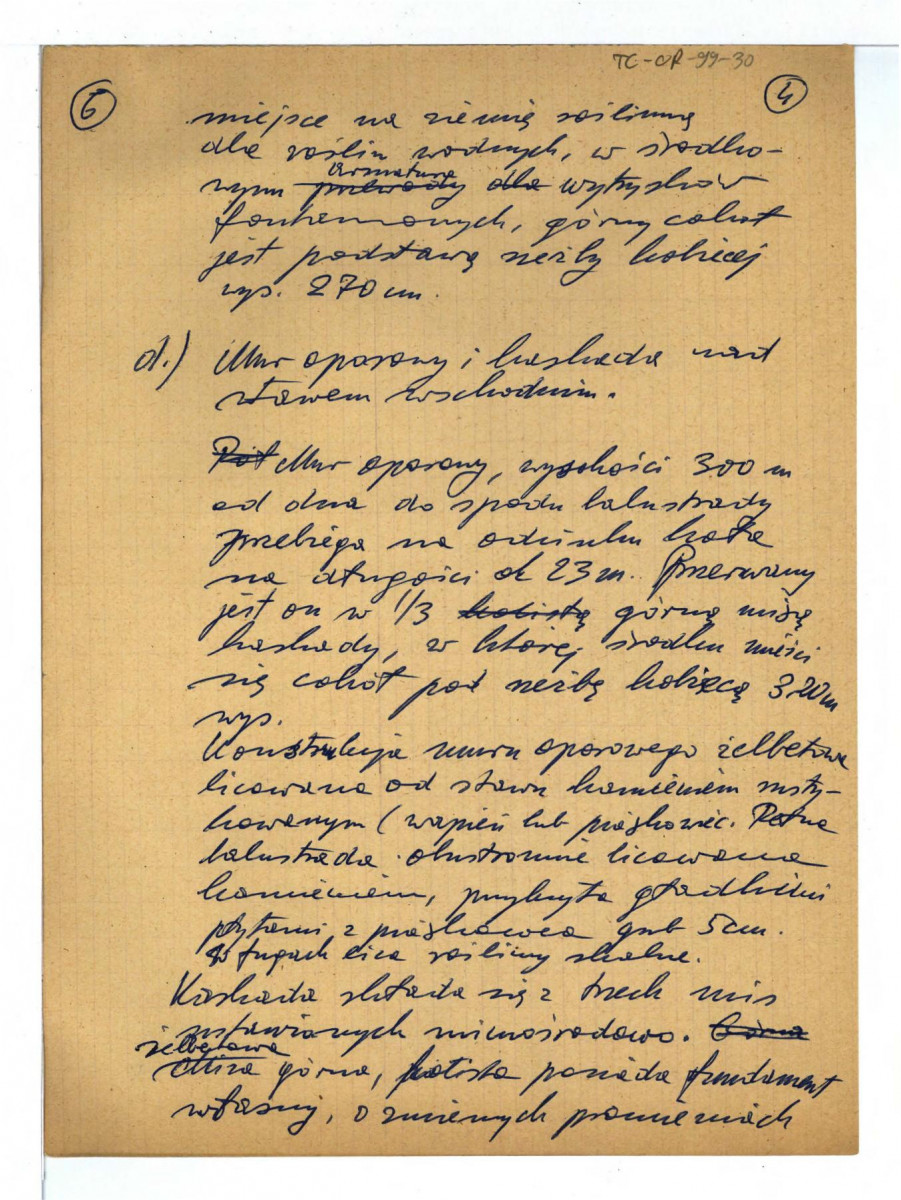 TC-OR-99-30
6
4
miejsce na ziemię roślinną
dla roślin wodnych, w środko-
armaturę
wym przewody dla wytrysków
fontannowych, górny cokuł
jest podstawą rzeźby kobiecej
wys. 270 cm.
d.) Mur oporowy i kaskada nad
stawem wschodnim.
Mur oporowy, wysokości 300 m
od dna do spodu balustrady
przebiega na odcinku koła
na długości ok 23 m. Przerwany
jest on w 1/3 kolistą górną misą
kaskady, w której środku mieści
się cokół pod rzeźbę kobiecą 320 m
wys.
Konstrukcja muru oporowego żelbetowa
licowana od stawu kamieniem rusty-
kowanym (wapień lub piaskowiec. Pełna
balustrada obustronnie licowana
kamieniem, przykryta gładkimi
płytami z piaskowca grub 5 cm.
W fugach lica rośliny skalne.
Kaskada składa się z trzech mis
ustawionych mimośrodowo. Górna
żelbetowa
Misa górna, kolista posiada fundament
własny, o zmiennych promieniach